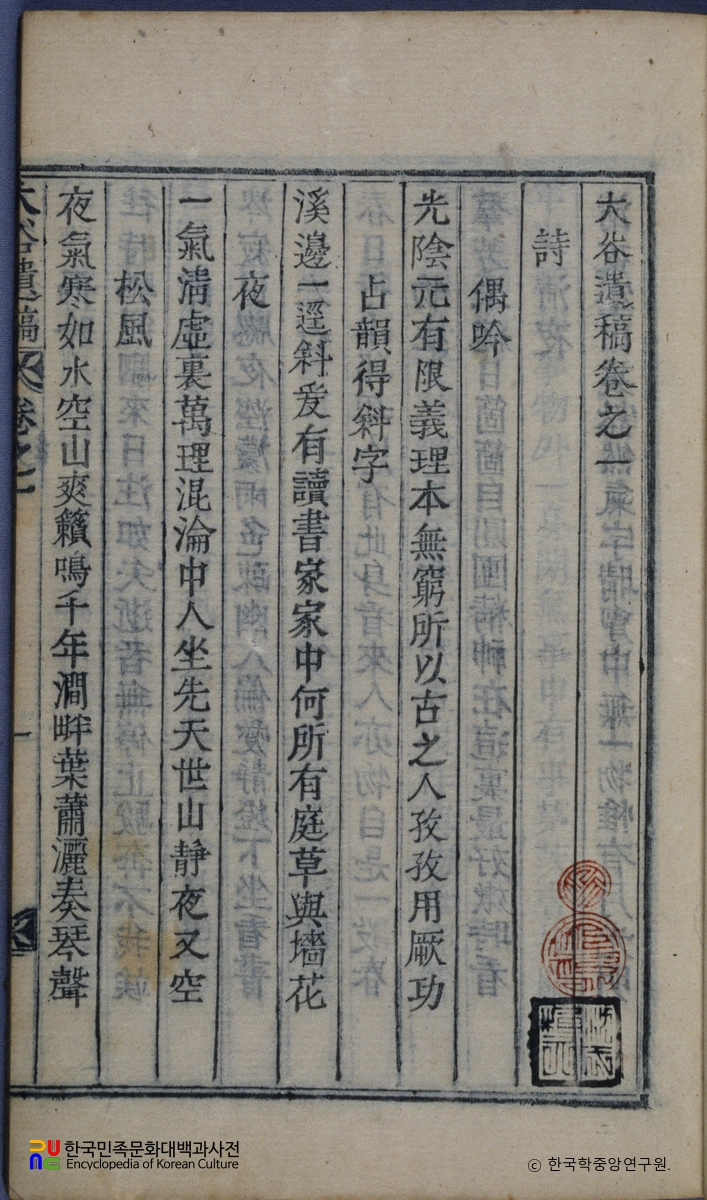 大谷遺稿卷之一
詩
偶吟
光陰元有限義理本無窮所以古之人孜孜用厥功
占韻得斜字
溪邊一逕斜爰有讀書家家中何所有庭草與墻花
夜
一氣淸虛裏萬理混淪中人坐先天世山靜夜又空
松風
夜氣寒如水空山爽籟鳴千年澗畔葉蕭灑奏琴聲
大谷遺稿 卷之一
一
한국민족문화대백과사전
Encyclopedia of Korean Culture
© 한국학중앙연구원.